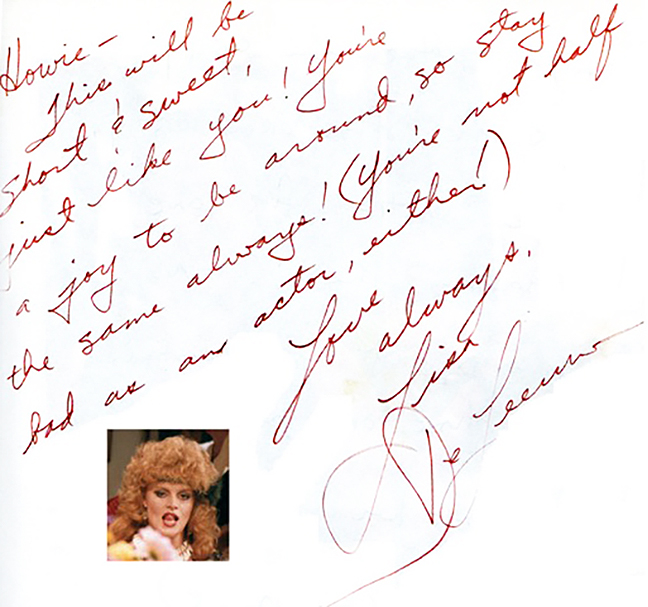 Howie -
This will be
short & sweet,
just like you! You're
a joy to be around, so stay
the same always! (You're not half
bad as an actor, either!)
Love
always,
Lisa
De Leeuw